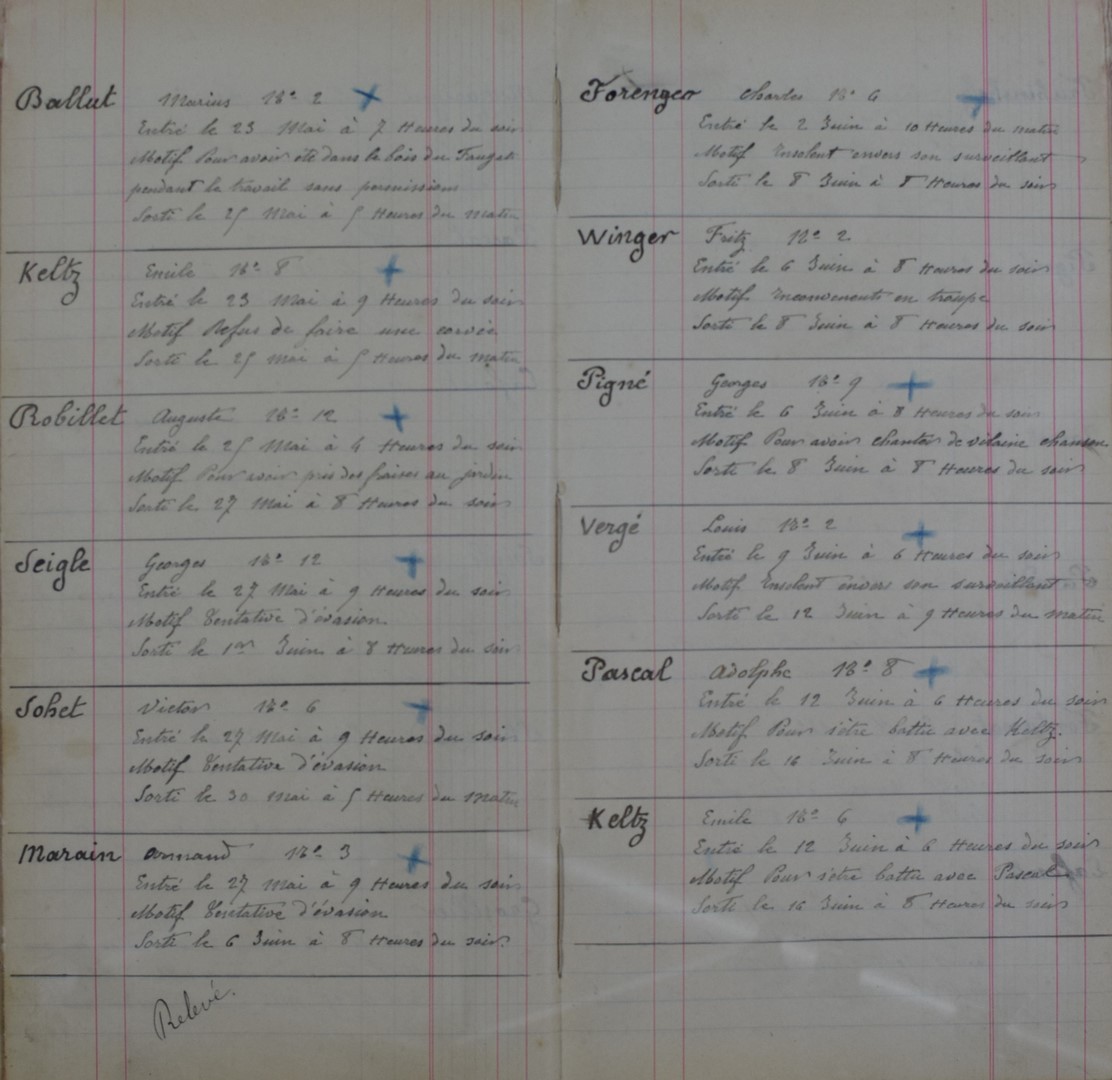 Ballut Marius Bon 2
Entré le 23 Mai à 7 Heures du soir
Motif Pour avoir été dans le bois du
pendant le travail sans permissions
Sorti le 25 Mai à 5 Heures du matin
Keltz Emile Bon 8
Entré le 23 Mai à 9 Heures du soir
Motif Refus de faire une corvée
Sorti le 25 Mai à 5 Heures du matin
Robillet Auguste Bon 12
Entré le 25 Mai à 4 Heures du soir
Motif Pour avoir pris des fraises au jardin
Sorti le 27 Mai à 8 Heures du soir
Seigle Georges Bon 12
Entré le 27 Mai à 9 Heures du soir
Motif Tentative d'évasion
Sorti le 1er Juin à 8 Heures du soir
Sohet Victor Bon 6
Entré le 27 Mai à 9 Heures du soir
Motif Tentative d'évasion
Sorti le 30 Mai à 5 Heures du matin
Marain Armand Bon 3
Entré le 27 Mai à 9 Heures du soir
Motif Tentative d'évasion
Sorti le 6 Juin à 8 Heures du soir
Relevé.
Forenger Charles Bon 6
Entré le 2 Juin à 10 Heures du matin
Motif Insolent envers son surveillant
Sorti le 8 Juin à 8 Heures du soir
Winger Fritz Bon 2
Entré le 6 Juin à 8 Heures du soir
Motif Inconvenents en troupe
Sorti le 8 Juin à 8 Heures du soir
Pigné Georges Bon 9
Entré le 6 Juin à 8 Heures du soir
Motif Pour avoir chanter de vilaine chanson
Sorti le 8 Juin à 8 Heures du soir
Vergé Louis Bon 2
Entré le 9 Juin à 6 Heures du soir
Motif Insolent envers son surveillant
Sorti le 12 Juin à 9 Heures du matin
Pascal Adolphe Bon 8
Entré le 12 Juin à 6 Heures du soir
Motif Pour s'être battu avec Keltz.
Sorti le 16 Juin à 8 Heures du soir
Keltz Emile Bon 6
Entré le 12 Juin à 6 Heures du soir
Motif Pour s'être battu avec Pascal
Sorti le 16 Juin à 8 Heures du soir